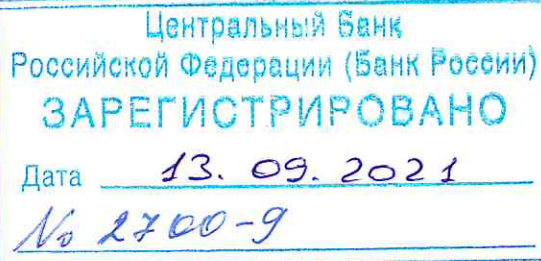 Центральный Банк
Российской Федерации (Банк России)
ЗАРЕГИСТРИРОВАНО
Дата 13. 09. 2021
№ 2700-9